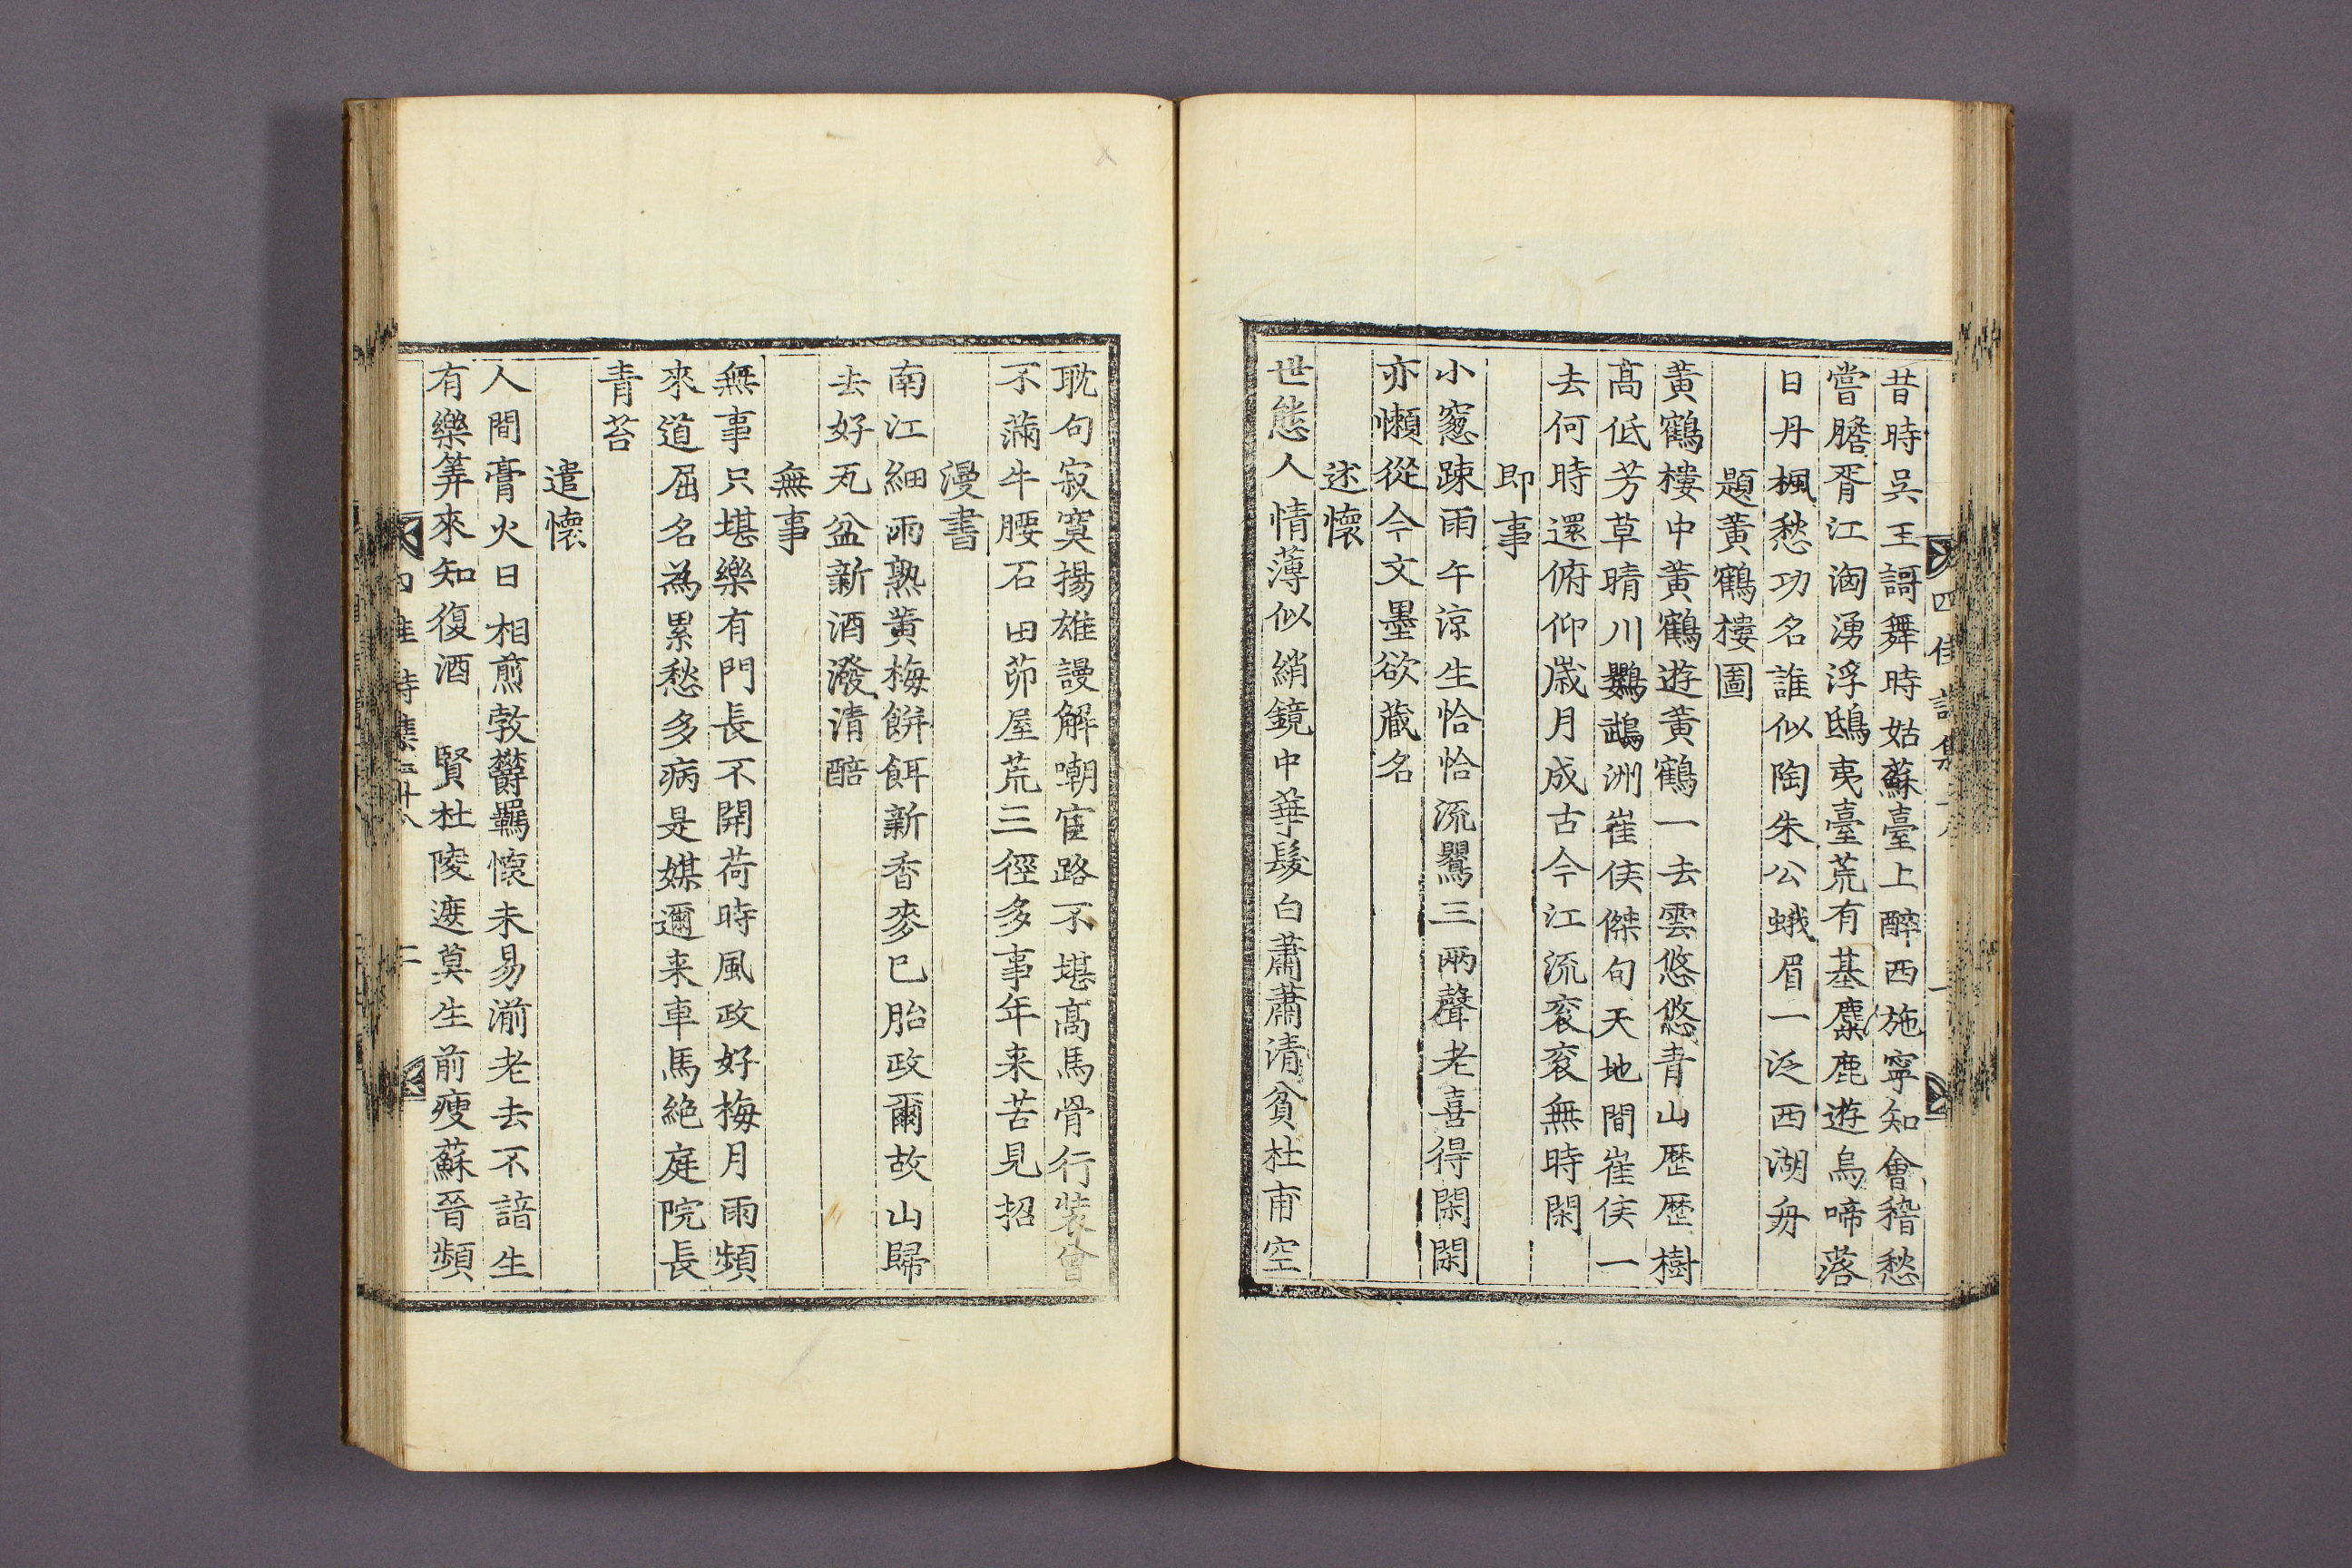 昔時吳王謌舞時姑蘇臺上醉西施寧知會稽愁
嘗膽胥江洶湧浮鴟夷臺荒有基麋鹿遊烏啼落
日丹楓愁功名誰似陶朱公蛾眉一泛西湖舟
題黃鶴樓圖
黃鶴樓中黃鶴遊黃鶴一去雲悠悠青山歷歷樹
高低芳草晴川鸚鵡洲崔侯傑句天地間崔侯一
去何時還俯仰歲月成古今江流衮衮無時閑
即事
小窓踈雨午涼生恰恰流鸎三兩聲老喜得閑閑
亦懶從今文墨欲藏名
述懷
世態人情薄似綃鏡中華髮白蕭蕭清貧杜甫空
耽句寂寞揚雄謾解嘲宦路不堪高馬骨行裝曾
不滿牛腰石田茆屋荒三徑多事年来苦見招
漫書
南江細雨熟黃梅餅餌新香麥已胎政爾故山歸
去好瓦盆新酒潑清醅
無事
無事只堪樂有門長不開荷時風政好梅月雨頻
來道屈名為累愁多病是媒邇来車馬絶庭院長
青苔
遣懷
人間膏火日相煎敦欝羈懷未易湔老去不諳生
有樂筭來知復酒 賢杜陵遮莫生前瘦蘇晉頻
四佳詩集